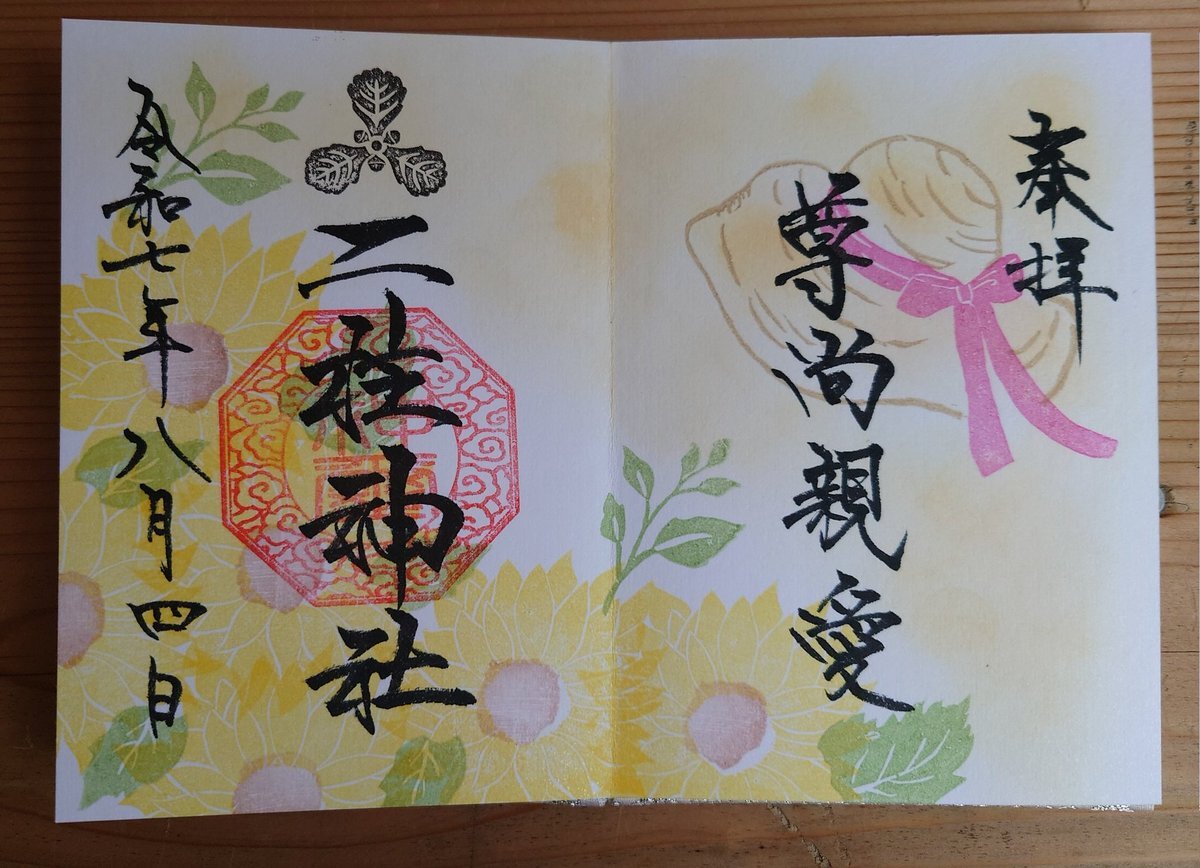 奉拝
尊尚親愛
二社神社
令和七年八月四日